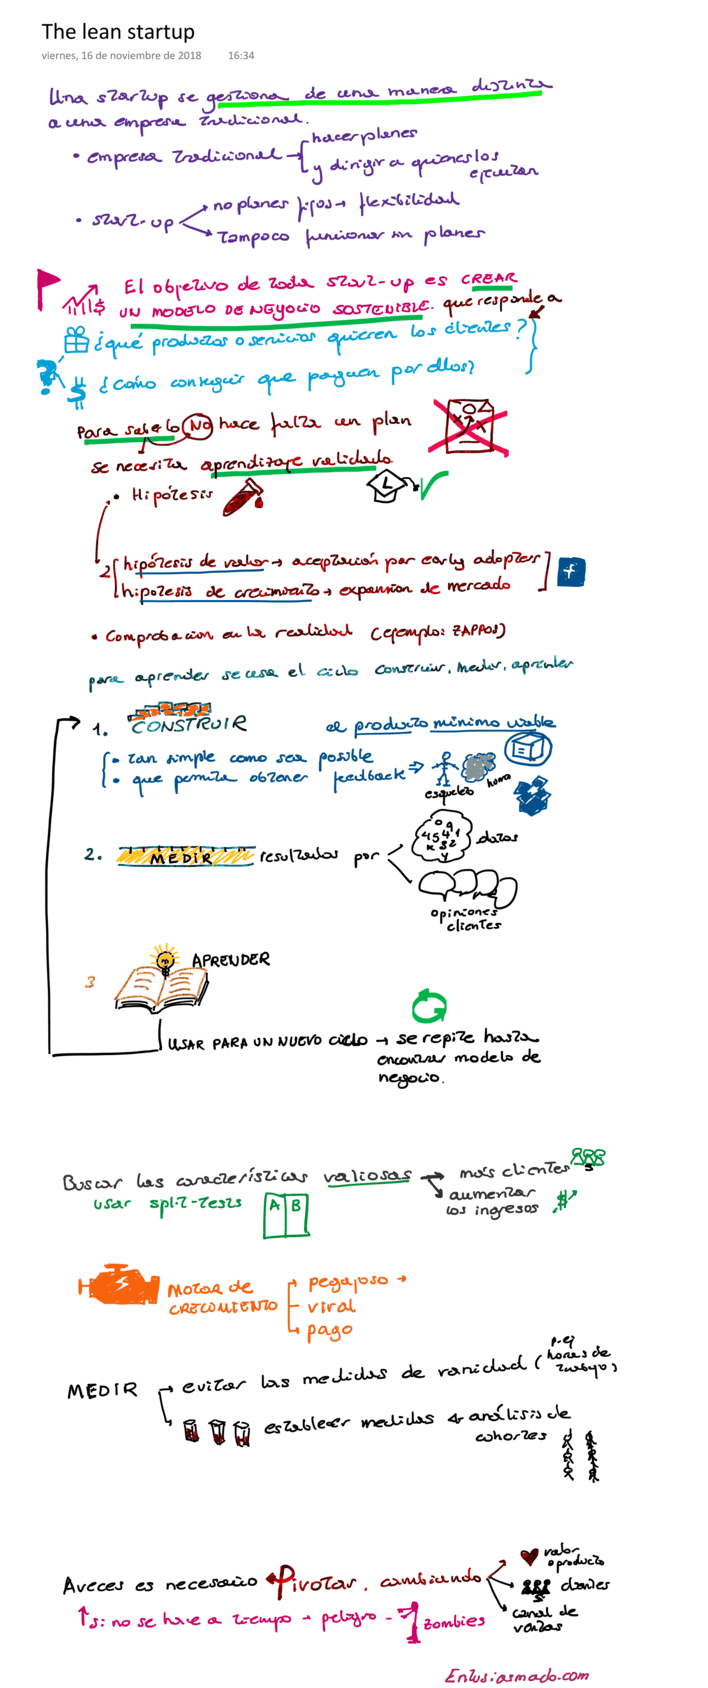 The lean startup
viernes, 16 de noviembre de 2018 16:34
Una startup se gestiona de una manera distinta
a una empresa tradicional.
• empresa tradicional → hacer planes
y dirigir a quienes los
ejecutan
• start-up → no planes fijos → flexibilidad
→ tampoco funcionar sin planes
El objetivo de toda start-up es CREAR
UN MODELO DE NEGOCIO SOSTENIBLE. que responde a
¿qué productos o servicios quieren los clientes?
$ ¿cómo conseguir que paguen por ellos?
Para saberlo NO hace falta un plan
se necesita aprendizaje validado
• Hipótesis
L
2 hipótesis de valor → aceptación por early adopters
hipotesis de crecimiento → expansion de mercado
f
• Comprobacion en la realidad (ejemplo: ZAPPOS)
para aprender se usa el ciclo construir, medir, aprender
1. CONSTRUIR el producto mínimo viable
• tan simple como sea posible
• que permita obtener feedback ⇒
esqueleto humo
2. MEDIR resultados por
datos
opiniones
clientes
3 APRENDER
USAR PARA UN NUEVO ciclo → se repite hasta
encontrar modelo de
negocio.
Buscar las características valiosas → más clientes
usar split-tests A B → aumentar
los ingresos $
MOTOR DE
CRECIMIENTO
→ pegajoso →
– viral
→ pago
MEDIR → evitar las medidas de vanidad (p.ej
horas de
trabajo)
→ establecer medidas → análisis de
cohortes
A veces es necesario Pivotar, cambiando
valor
o producto
clientes
canal de
ventas
↑ si no se hace a tiempo → peligro - zombies
Entusiasmado.com